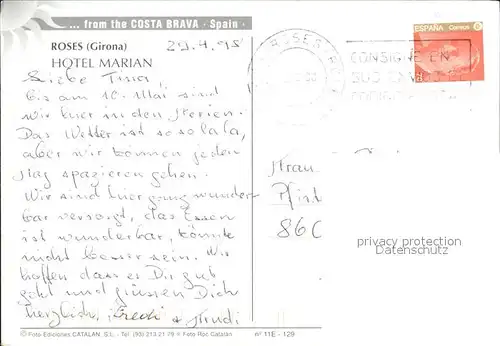 ... from the COSTA BRAVA · Spain ·
ROSES (Girona)
29.4.98
HOTEL MARIAN
ESPAÑA Correos
ROSES
CONSIGNE EN
SUS ENVIOS
Liebe Tina
bis am 10. Mai sind
wir hier in den Ferien.
Das Wetter ist so so la la,
aber wir können jeden
Tag spazieren gehen.
Wir sind hier ganz wunder-
bar versorgt, das Essen
ist wunderbar, könnte
nicht besser sein. Wir
hoffen dass es Dir gut
geht und grüssen Dich
herzlich, Fredi + Trudi
Frau
86
privacy protection
Datenschutz
© Foto-Ediciones CATALAN, S.L. - Tel (93) 213 21 79 # Foto Roc Catalan
nº 11E - 129